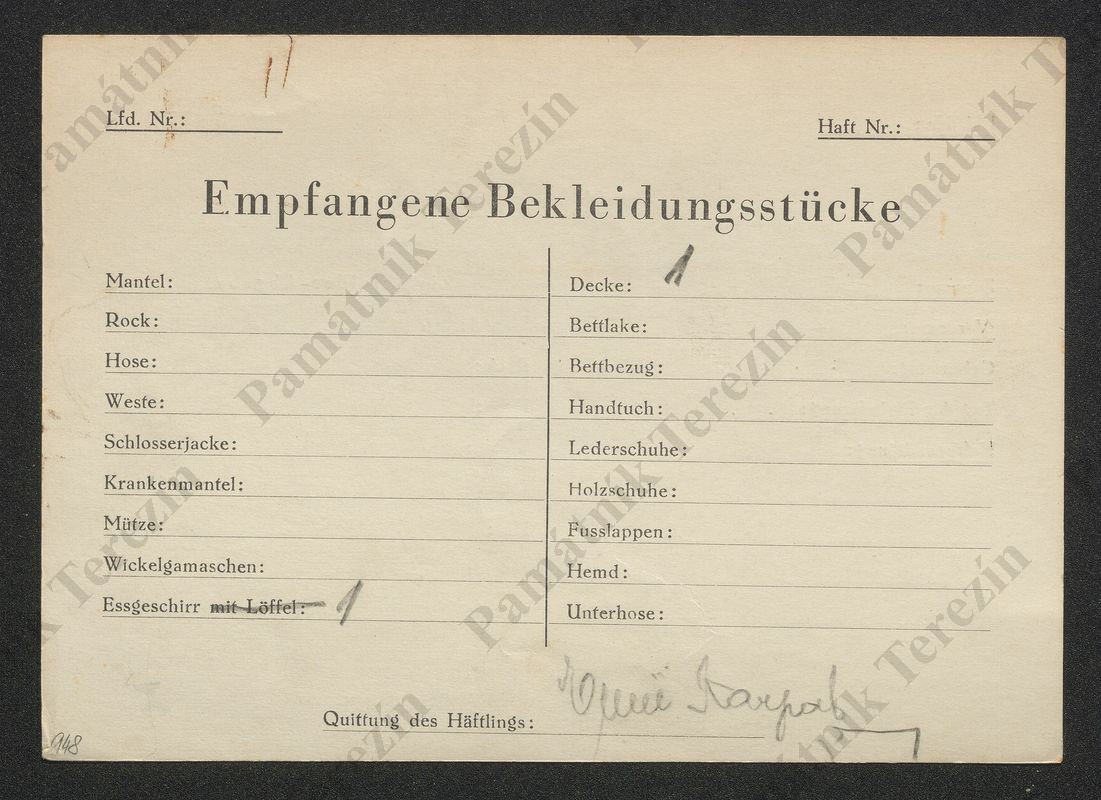 Lfd. Nr.:
Haft Nr.:
Empfangene Bekleidungsstücke
Mantel:
Rock:
Hose:
Weste:
Schlosserjacke:
Krankenmantel:
Mütze:
Wickelgamaschen:
Essgeschirr mit Löffel: 1
Decke: 1
Bettlake:
Bettbezug:
Handtuch:
Lederschuhe:
Holzschuhe:
Fusslappen:
Hemd:
Unterhose:
Quittung des Häftlings:
948
Památník Terezín